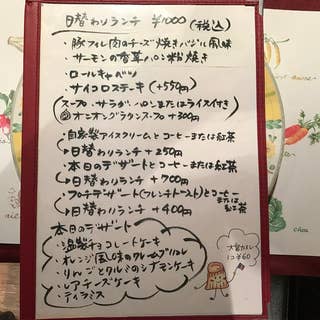 日替わりランチ ¥1000 (税込)
・豚フィレ肉のチーズ焼きバジル風味
・サーモンの香草パン粉焼き
・ロールキャベツ
・サイコロステーキ (+550円)
スープ・サラダ・パンまたはライス付き
オニオングラタンスープ+300円
・自家製アイスクリームとコーヒーまたは紅茶
→日替わりランチ+250円
・本日のデザートとコーヒーまたは紅茶
→日替わりランチ+700円
・プチデザート(フレンチトースト)とコーヒーまたは紅茶
→日替わりランチ+400円
本日のデザート
・温製チョコレートケーキ
・オレンジ風味のクレームブリュレ
・りんごとクルミのシナモンケーキ
・レアチーズケーキ
・ティラミス
1コ ¥60